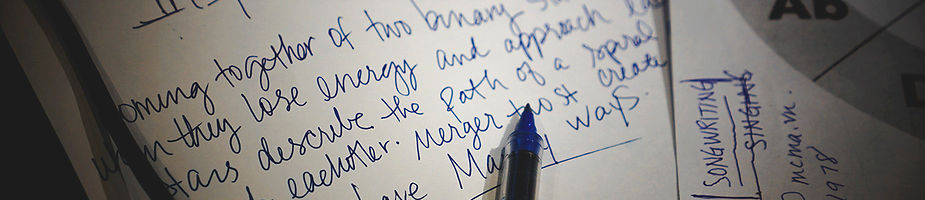 oming together of two binary
when they lose energy and approach
stars describe the path of a spiral
eachother. Merger most create
have Many ways.
AB
D
SONGWRITING
SINGING
mcma.vn.
1978